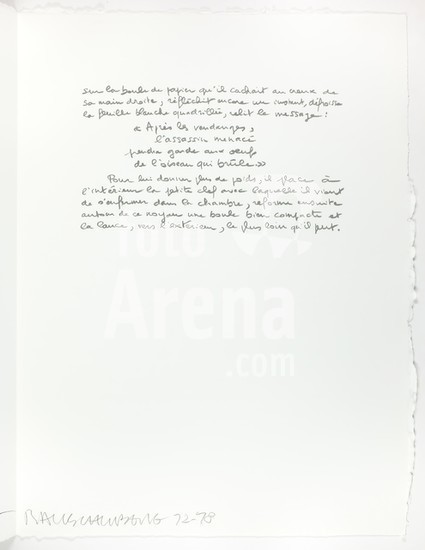 sur la boule de papier qu'il cachait au creux de
sa main droite, réfléchit encore un instant, défroisse
la feuille blanche quadrillée, relit le message :
« Après les vendanges,
l'assassin menacé
prendra garde aux œufs
de l'oiseau qui brûle »
Pour lui donner plus de poids, il place à
l'intérieur la petite clef avec laquelle il vient
de s'enfermer dans la chambre, referme ensuite
autour de ce noyau une boule bien compacte et
la lance, vers l'extérieur, le plus loin qu'il peut.
Arena
.com
RAUSCHENBERG 72-78